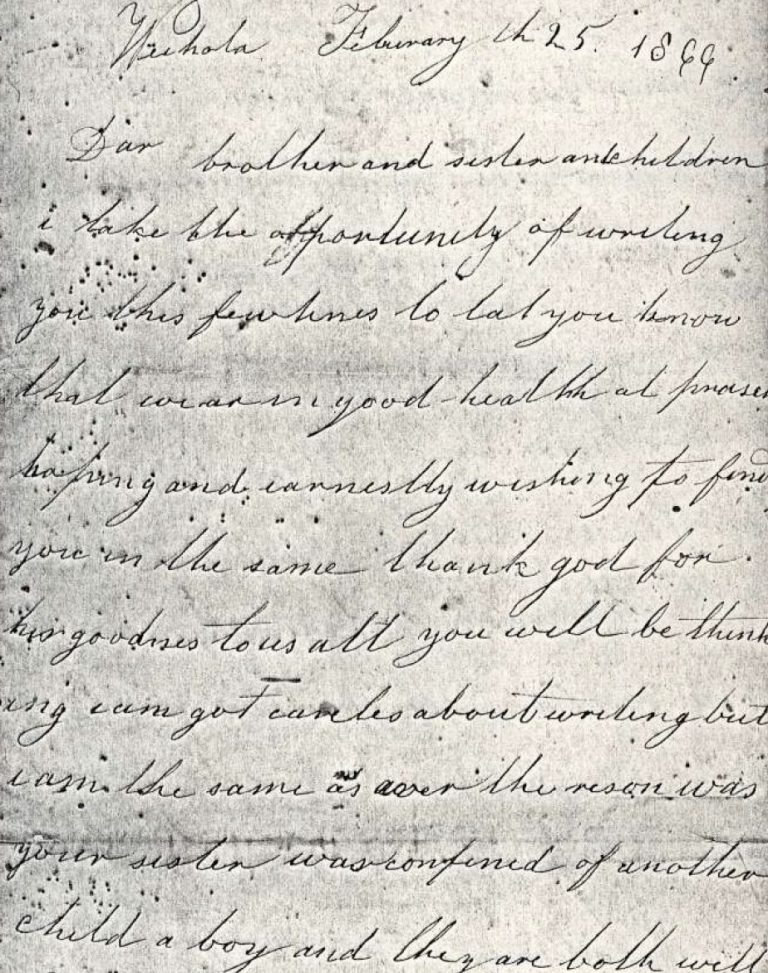 Wechola Feburary th 25. 1866.
Dar brother and sister and children
i take the opportunity of writing
you this few lines to lat you know
that we ar in good health at prasen
hoping and earnestly wishing to find
you in the same thank god for
his goodnes to us all you will be think
ing i am got careles about writing but
i am the same as aver the reson was
your sister was confined of another
child a boy and they are both will